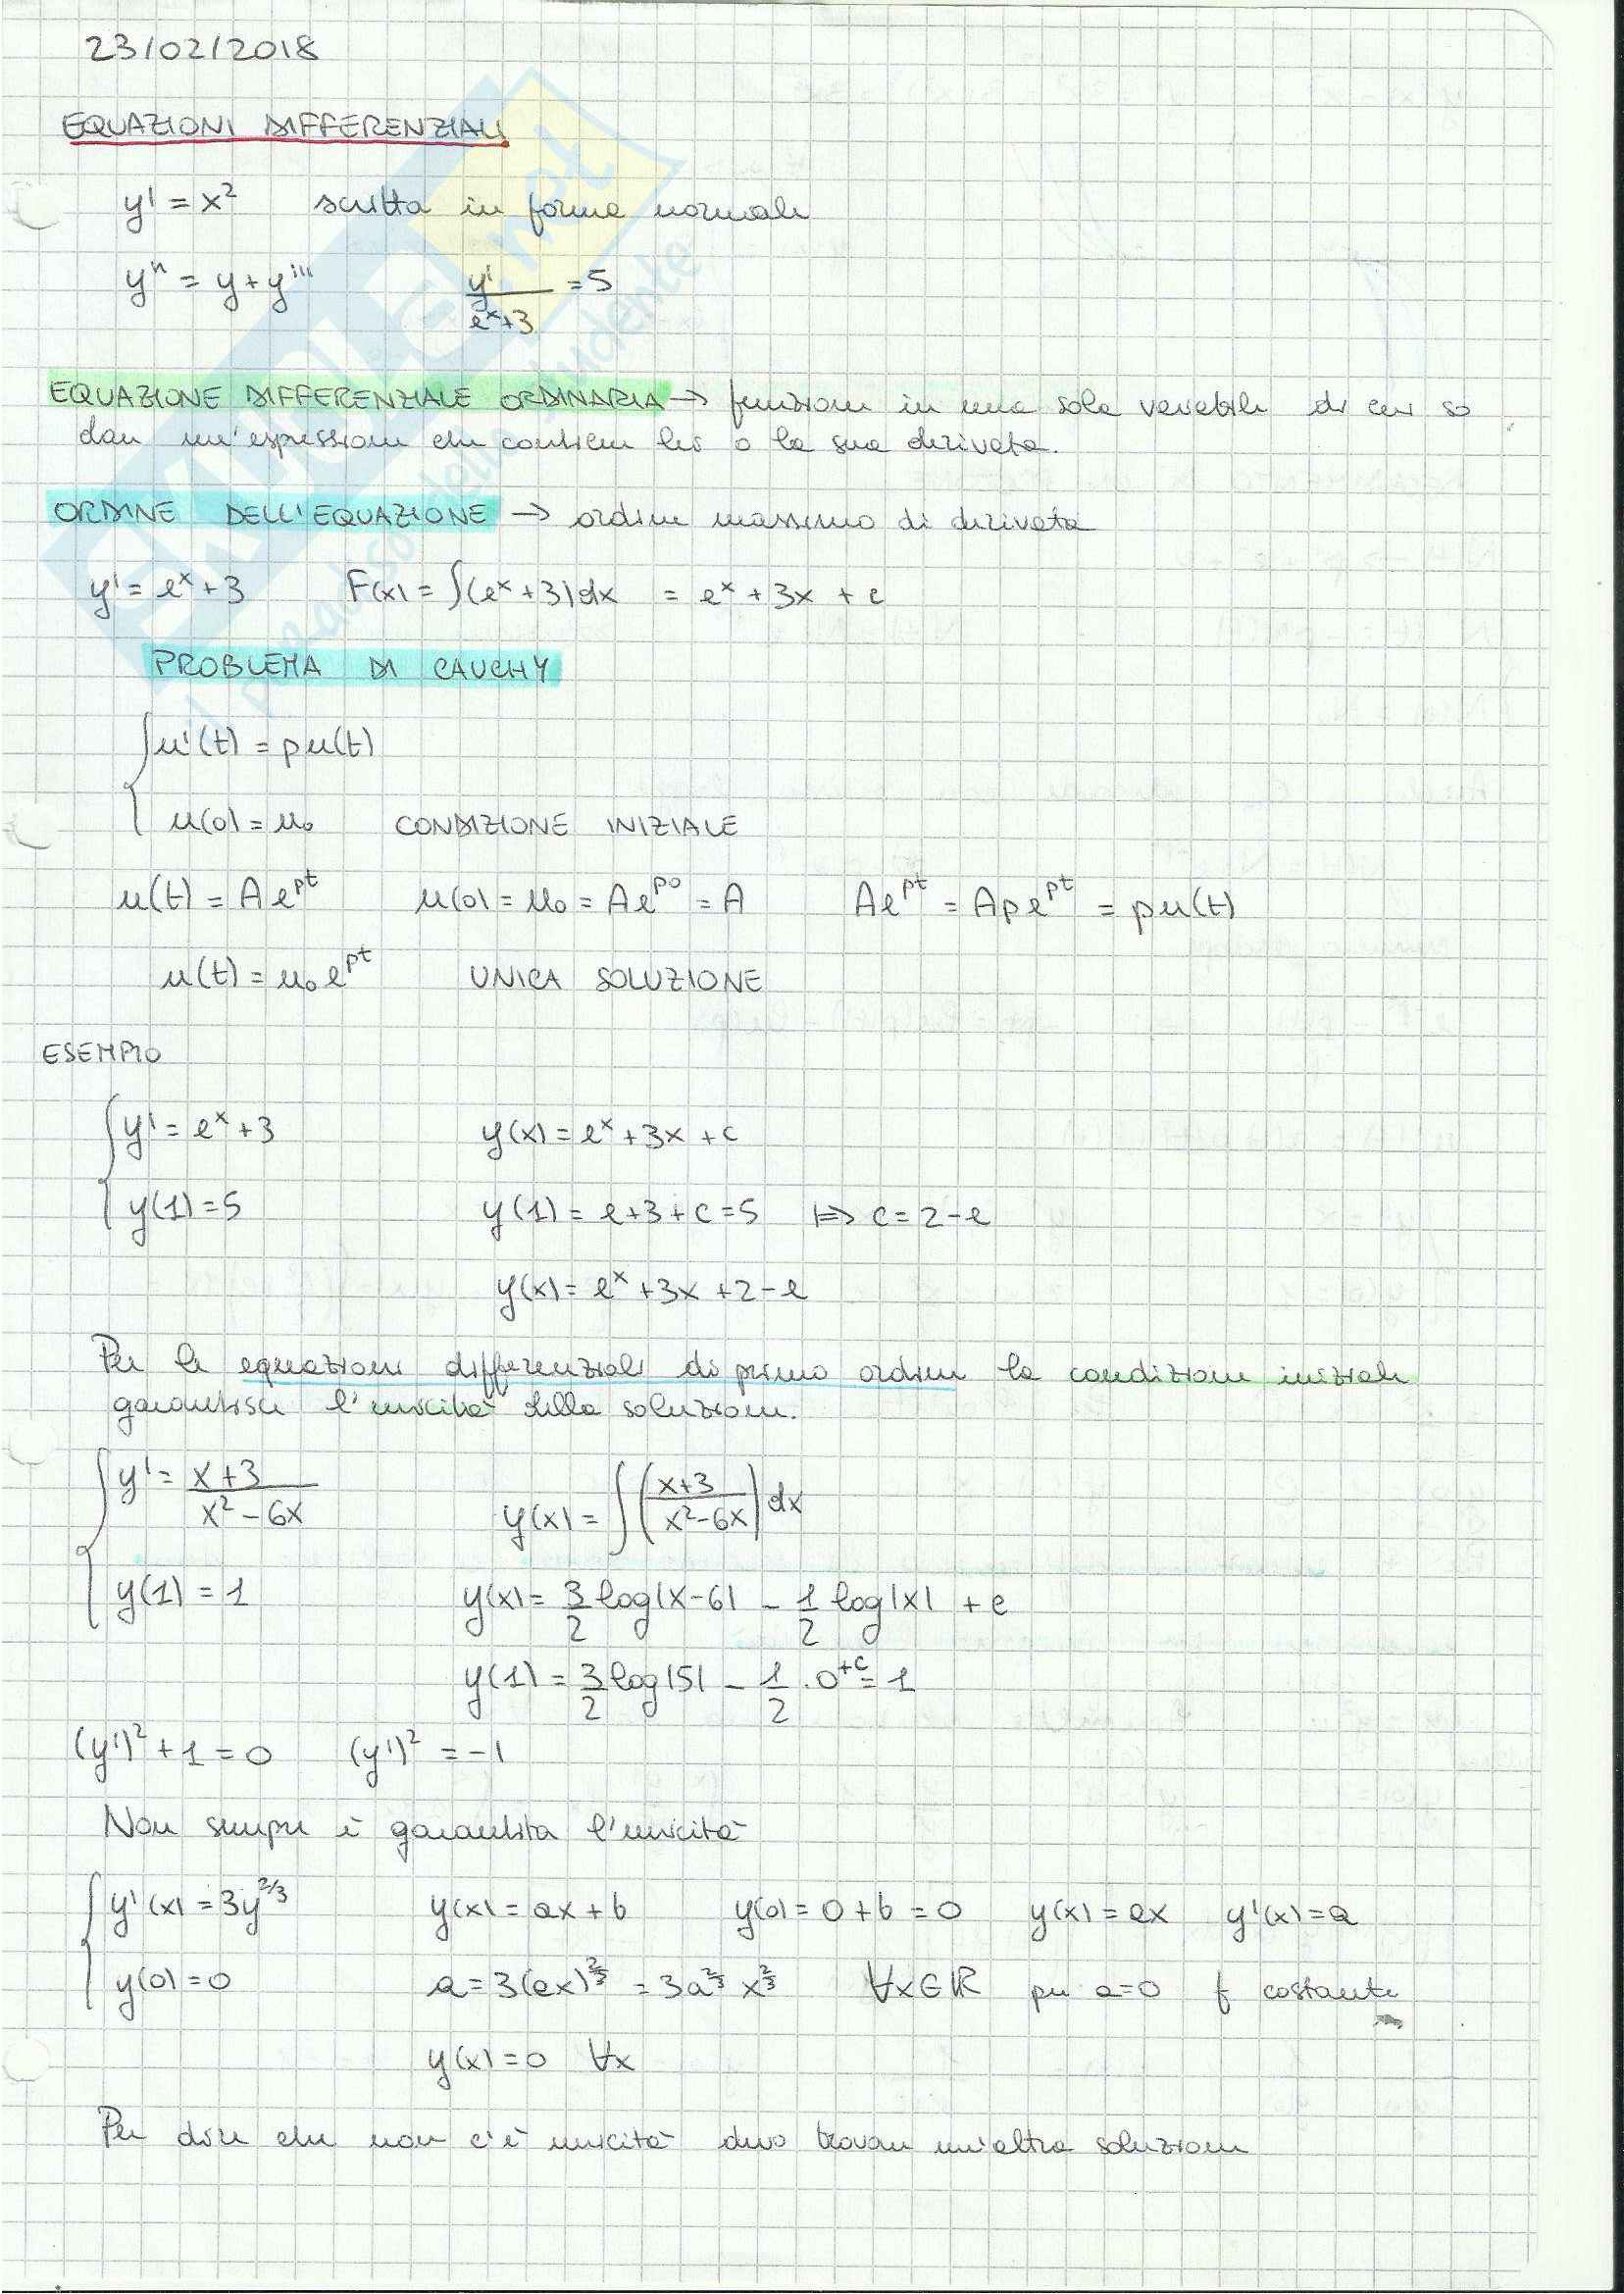 23/02/2018
EQUAZIONI DIFFERENZIALI
y' = x² scritta in forma normale
y'' = y + y''' y'/(eˣ+3) = 5
EQUAZIONE DIFFERENZIALE ORDINARIA → funzione in una sola variabile di cui so
dare un'espressione che contiene lei o la sua derivata.
ORDINE DELL'EQUAZIONE → ordine massimo di derivata
y' = eˣ + 3 F(x) = ∫(eˣ+3)dx = eˣ + 3x + c
PROBLEMA DI CAUCHY
{ u'(t) = pu(t)
u(0) = u₀ CONDIZIONE INIZIALE
u(t) = Ae^pt u(0) = u₀ = Ae^p0 = A Ae^pt = Ape^pt = pu(t)
u(t) = u₀e^pt UNICA SOLUZIONE
ESEMPIO
{ y' = eˣ + 3 y(x) = eˣ + 3x + c
y(1) = 5 y(1) = e + 3 + c = 5 ⟹ c = 2 - e
y(x) = eˣ + 3x + 2 - e
Per le equazioni differenziali di primo ordine la condizione iniziale
garantisce l'unicità della soluzione.
{ y' = (x+3)/(x²-6x) y(x) = ∫((x+3)/(x²-6x))dx
y(1) = 1 y(x) = 3/2 log|x-6| - 1/2 log|x| + c
y(1) = 3/2 log|5| - 1/2 · 0 + c = 1
(y')² + 1 = 0 (y')² = -1
Non sempre è garantita l'unicità
{ y'(x) = 3y^2/3 y(x) = ax + b y(0) = 0 + b = 0 y(x) = ax y'(x) = a
y(0) = 0 a = 3(ax)^2/3 = 3a^2/3 x^2/3 ∀x∈ℝ per a=0 f costante
y(x) = 0 ∀x
Per dire che non c'è unicità devo trovare un'altra soluzione